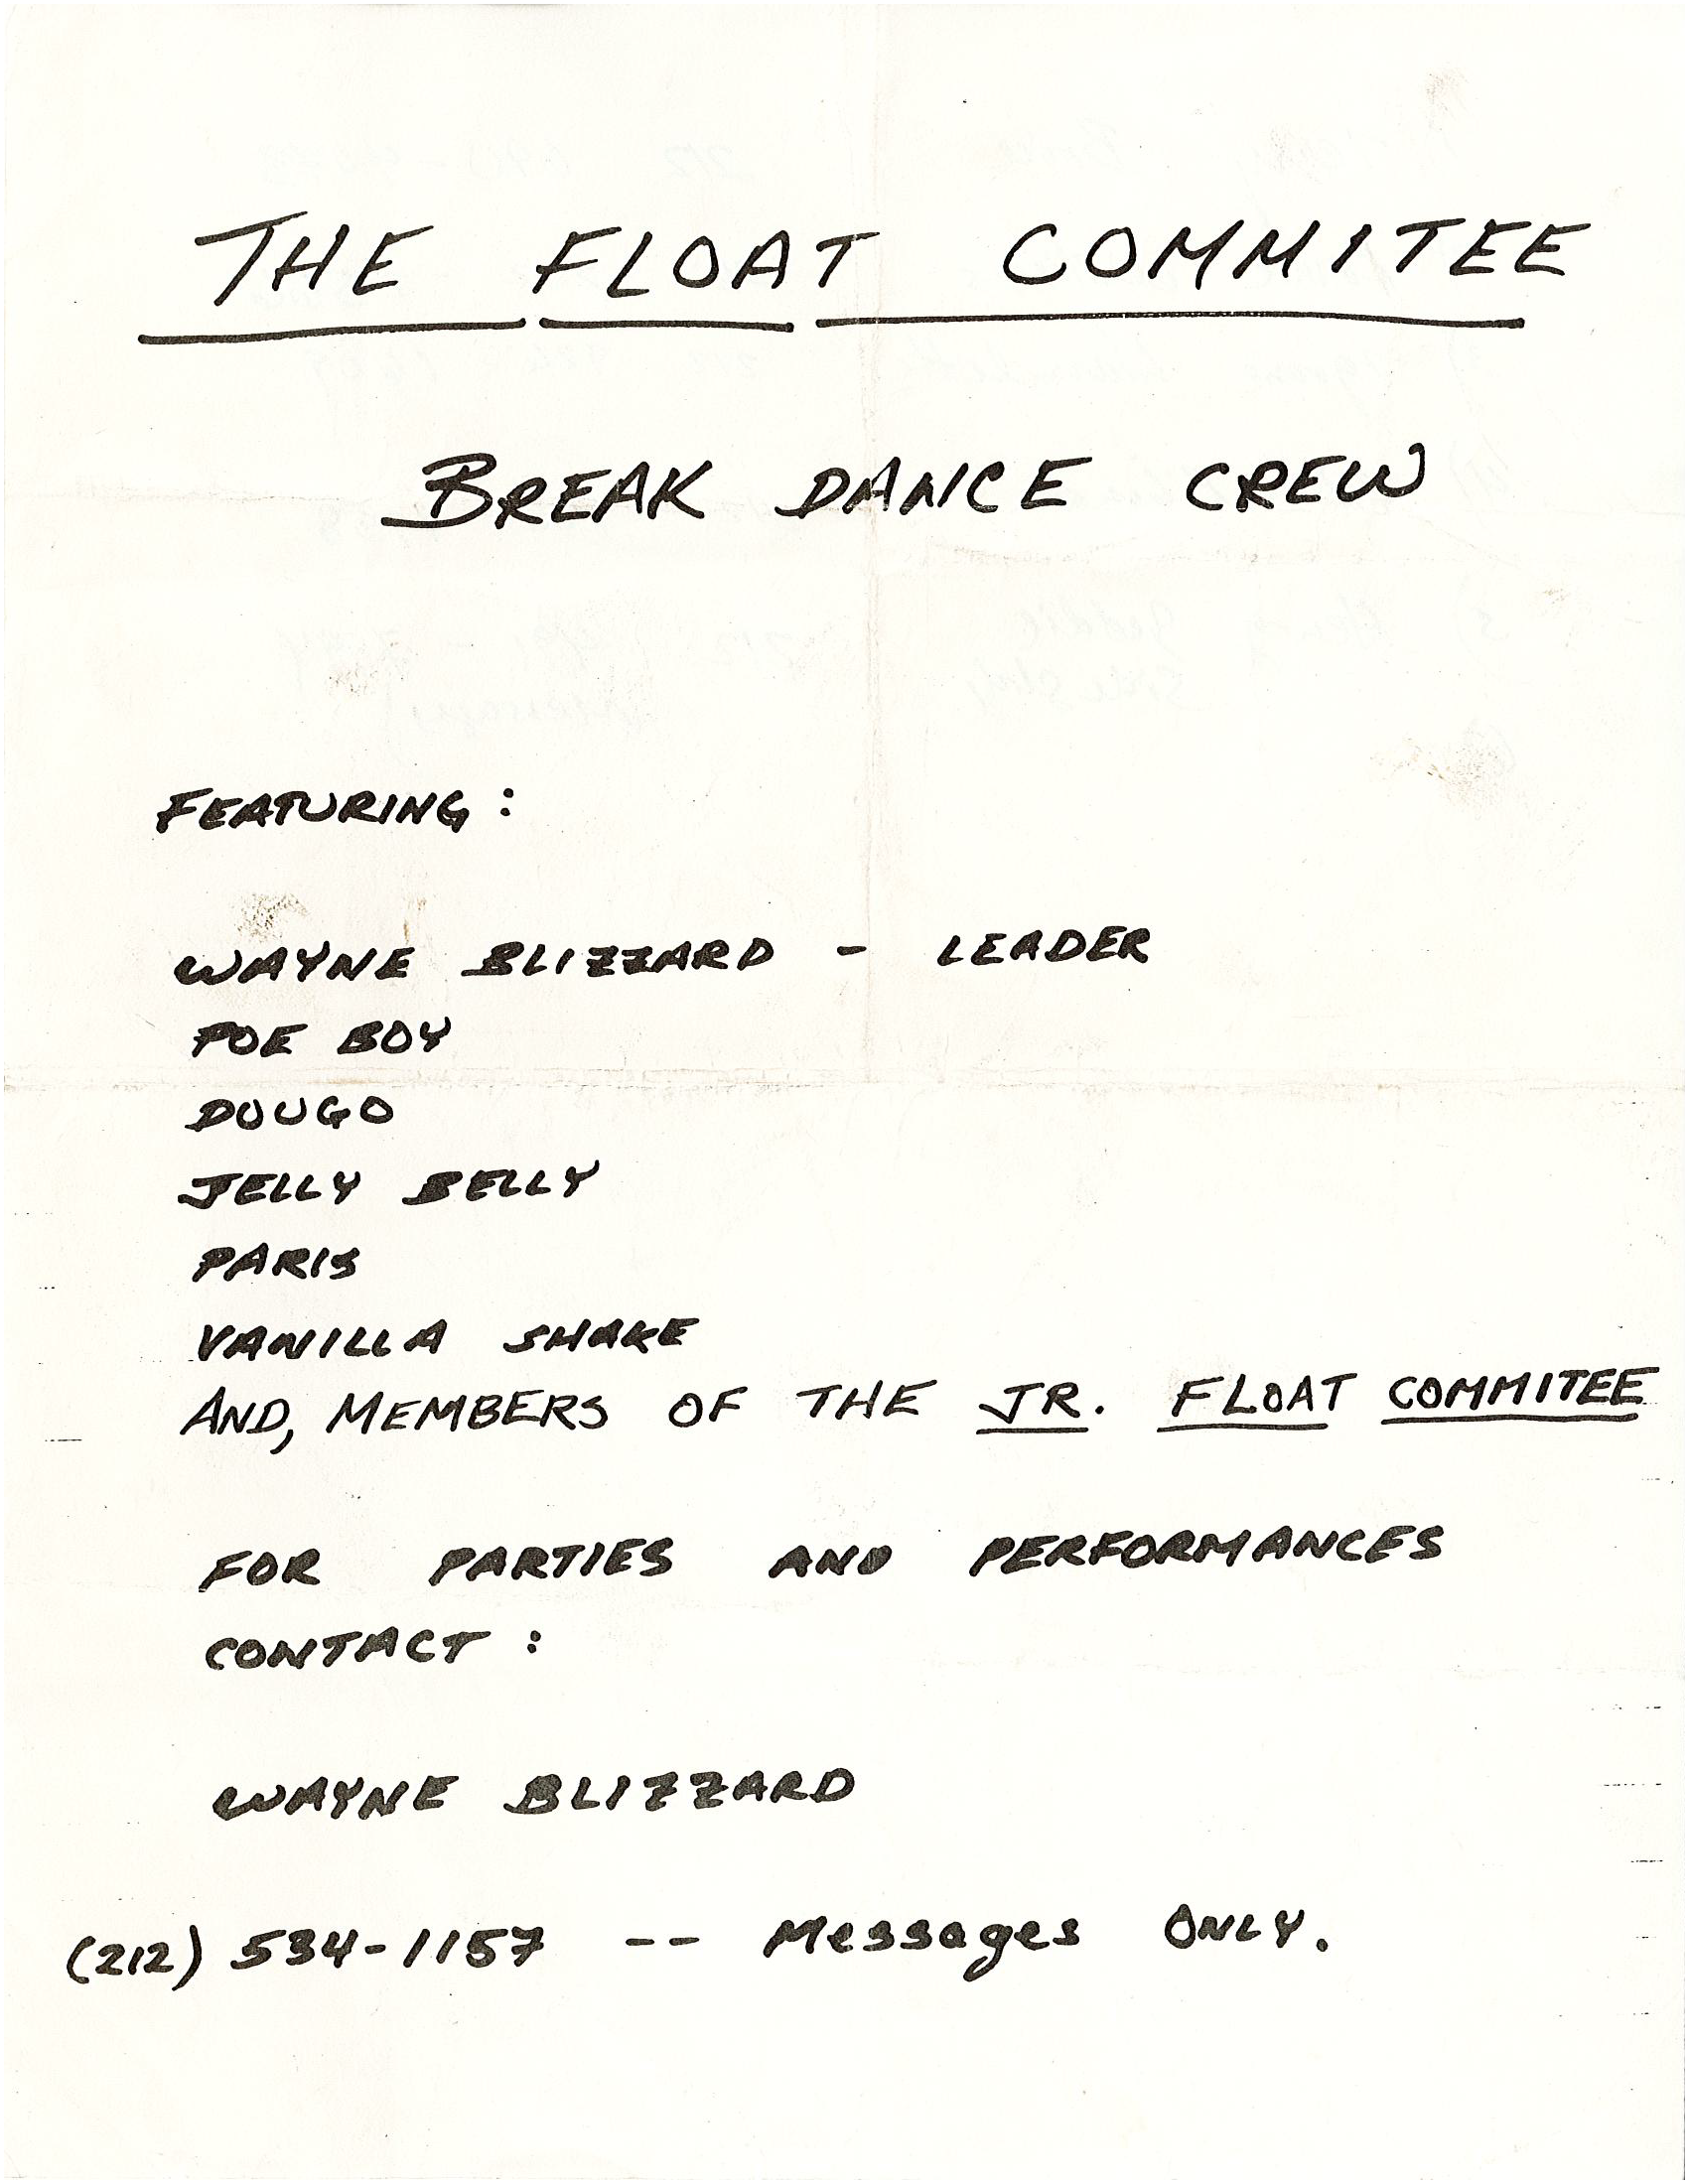 THE FLOAT COMMITEE
BREAK DANCE CREW
FEATURING:
WAYNE BLIZZARD - LEADER
POE BOY
DOUGO
JELLY BELLY
PARIS
VANILLA SHAKE
AND, MEMBERS OF THE JR. FLOAT COMMITEE
FOR PARTIES AND PERFORMANCES
CONTACT:
WAYNE BLIZZARD
(212) 534-1157 -- Messages ONLY.